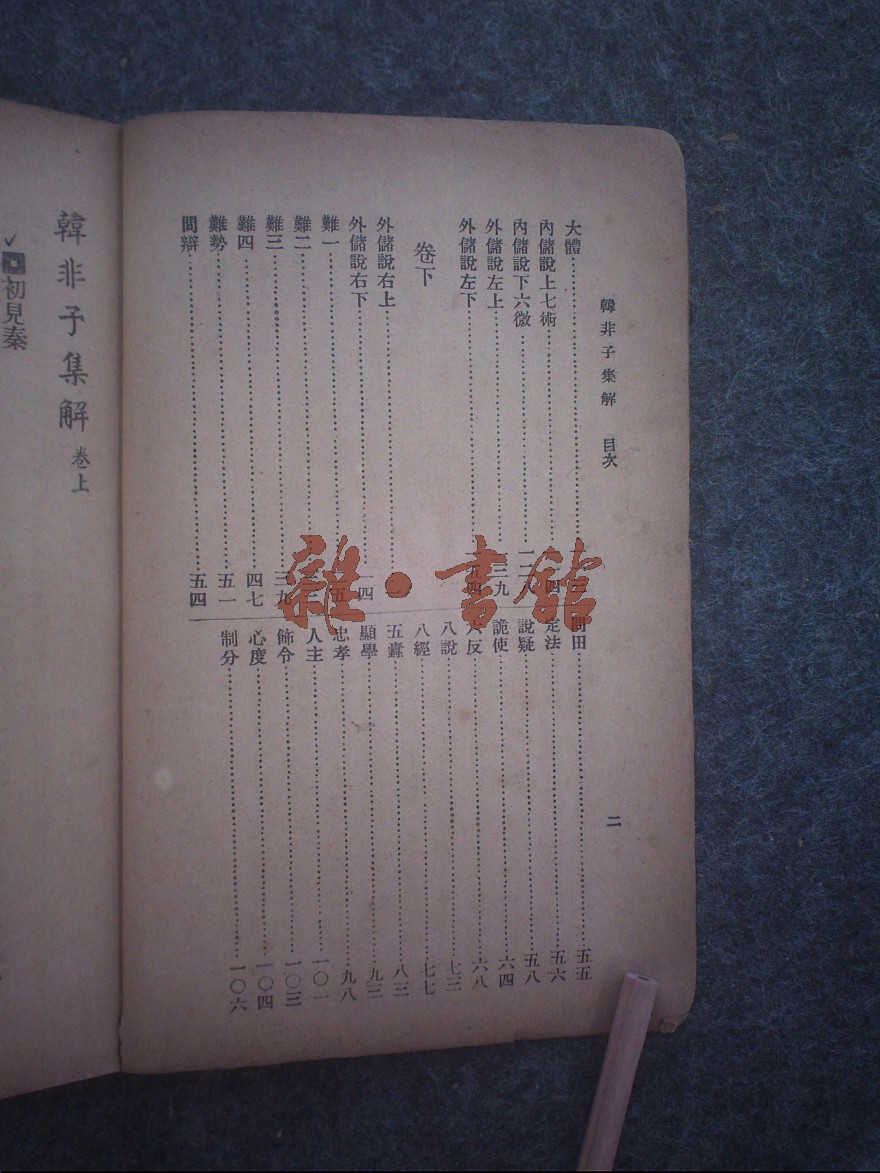 韓非子集解　目次
二
大體
內儲說上七術
內儲說下六微
外儲說左上
外儲說左下
卷下
外儲說右上
外儲說右下
難一
難二
難三……三九
難四……四七
難勢……五一
問辯……五四
問田……五五
定法……五六
說疑……五八
詭使……六四
六反……六八
八說……七三
八經……七七
五蠹……八三
顯學……九三
忠孝……九八
人主……一〇一
飾令……一〇三
心度……一〇四
制分……一〇六
韓非子集解 卷上
初見秦
雜·書館